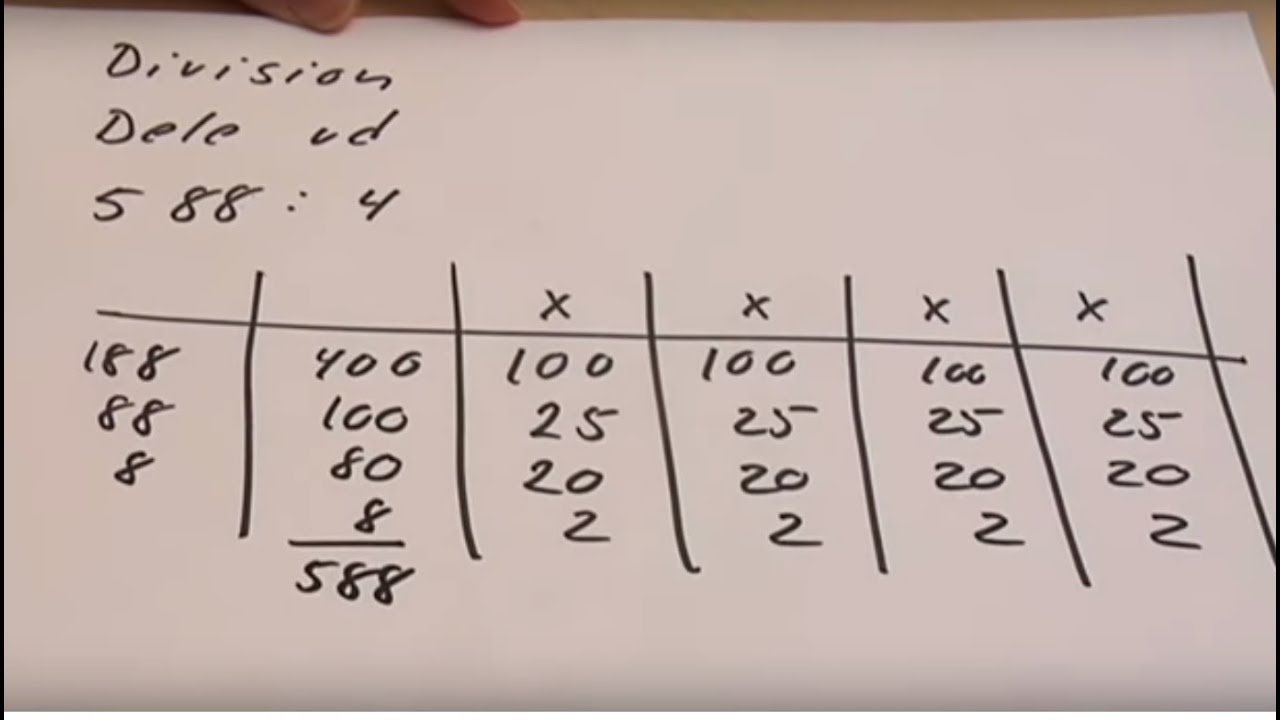 Division
Dele ud
588 : 4
x x x x
188 400 100 100 100 100
88 100 25 25 25 25
8 80 20 20 20 20
8 2 2 2 2
588